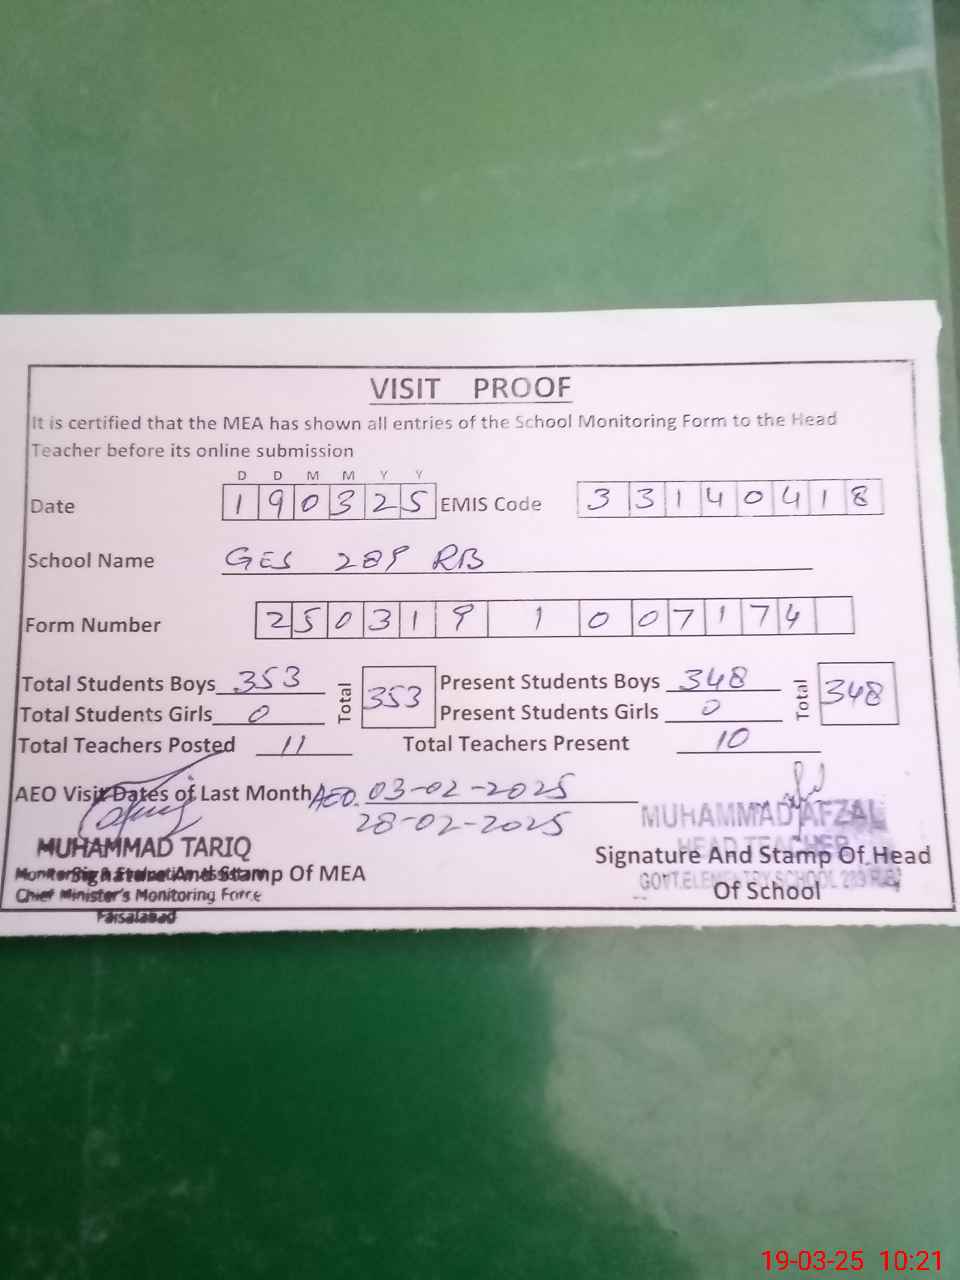 VISIT PROOF
It is certified that the MEA has shown all entries of the School Monitoring Form to the Head
Teacher before its online submission
D D M M Y Y
Date 1 9 0 3 2 5 EMIS Code 3 3 1 4 0 4 1 8
School Name GES 289 RB
Form Number 2 5 0 3 1 9 1 0 0 7 1 7 4
Total Students Boys 353 Total 353 Present Students Boys 348 Total 348
Total Students Girls 0 Present Students Girls 0
Total Teachers Posted 11 Total Teachers Present 10
AEO Visit Dates of Last Month AEO. 03-02-2025
28-02-2025
MUHAMMAD TARIQ
Signature And Stamp Of MEA
Chief Minister's Monitoring Force
Faisalabad
MUHAMMAD AFZAL
HEAD TEACHER
Signature And Stamp Of Head
GOVT.ELEMENTRY SCHOOL
Of School
19-03-25 10:21